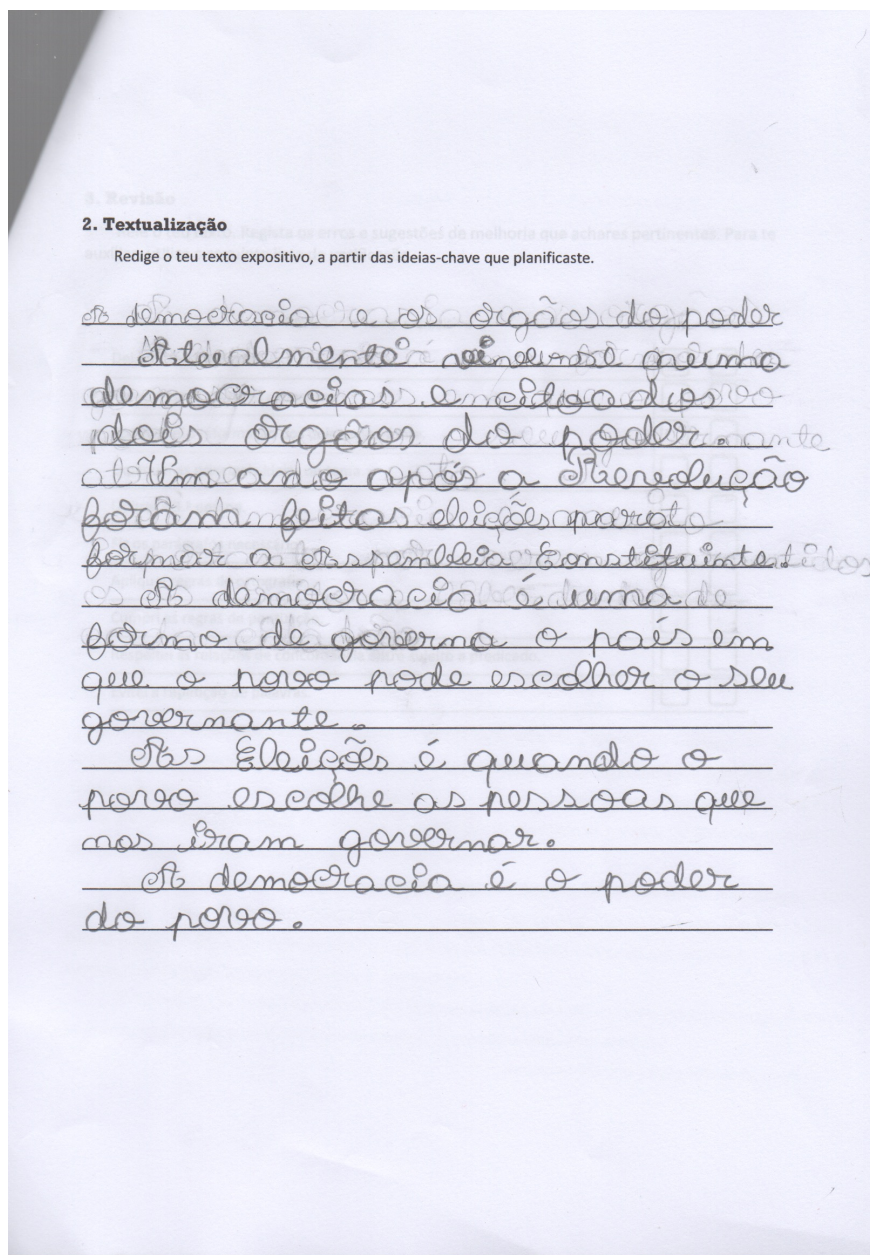 2. Textualização
Redige o teu texto expositivo, a partir das ideias-chave que planificaste.
A democracia e os orgãos do poder
Atualmente numa
democracias
dois órgãos do poder.
Um ano após a Revolução
foram feitas eleições para
formar a Constituinte.
A democracia é uma
forma de governo o país em
que o povo pode escolher o seu
governante.
As Eleições é quando o
povo escolhe as pessoas que
nos iram governar.
A democracia é o poder
do povo.